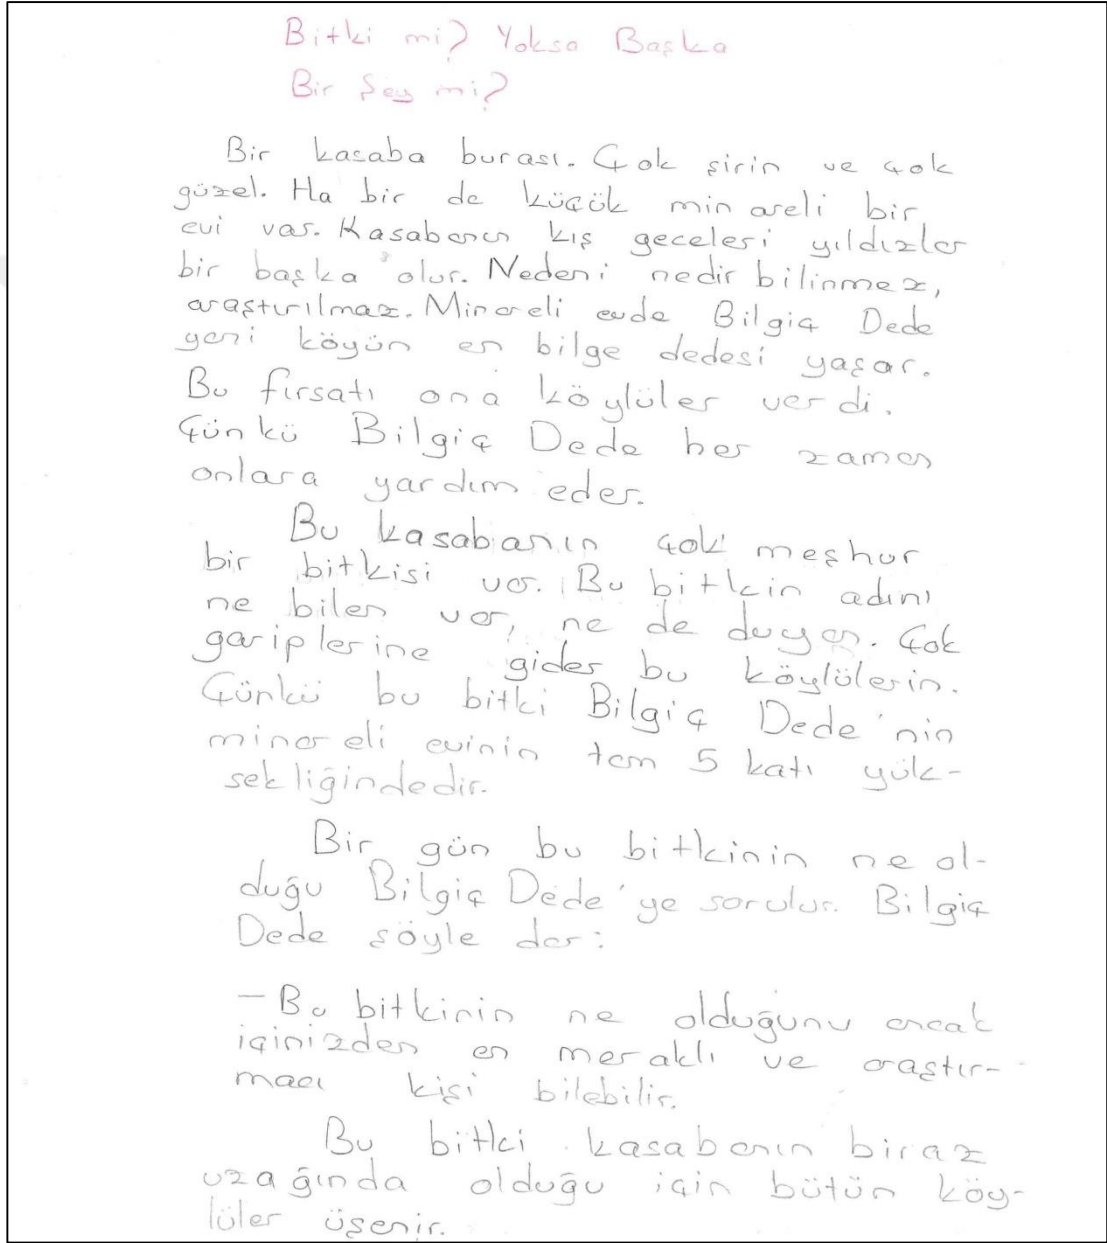 Bitki mi? Yoksa Başka
Bir Şey mi?
Bir kasaba burası. Çok şirin ve çok
güzel. Ha bir de küçük minareli bir
evi var. Kasabanın kış geceleri yıldızlar
bir başka olur. Nedeni nedir bilinmez,
araştırılmaz. Minareli evde Bilgiç Dede
yani köyün en bilge dedesi yaşar.
Bu fırsatı ona köylüler verdi.
Çünkü Bilgiç Dede her zaman
onlara yardım eder.
Bu kasabanın çok meşhur
bir bitkisi var. Bu bitkin adını
ne bilen var, ne de duyan. Çok
gariplerine gider bu köylülerin.
Çünkü bu bitki Bilgiç Dede'nin
minareli evinin tam 5 katı yük-
sekliğindedir.
Bir gün bu bitkinin ne ol-
duğu Bilgiç Dede'ye sorulur. Bilgiç
Dede şöyle der:
– Bu bitkinin ne olduğunu ancak
içinizden en meraklı ve araştır-
macı kişi bilebilir.
Bu bitki kasabanın biraz
uzağında olduğu için bütün köy-
lüler üşenir.